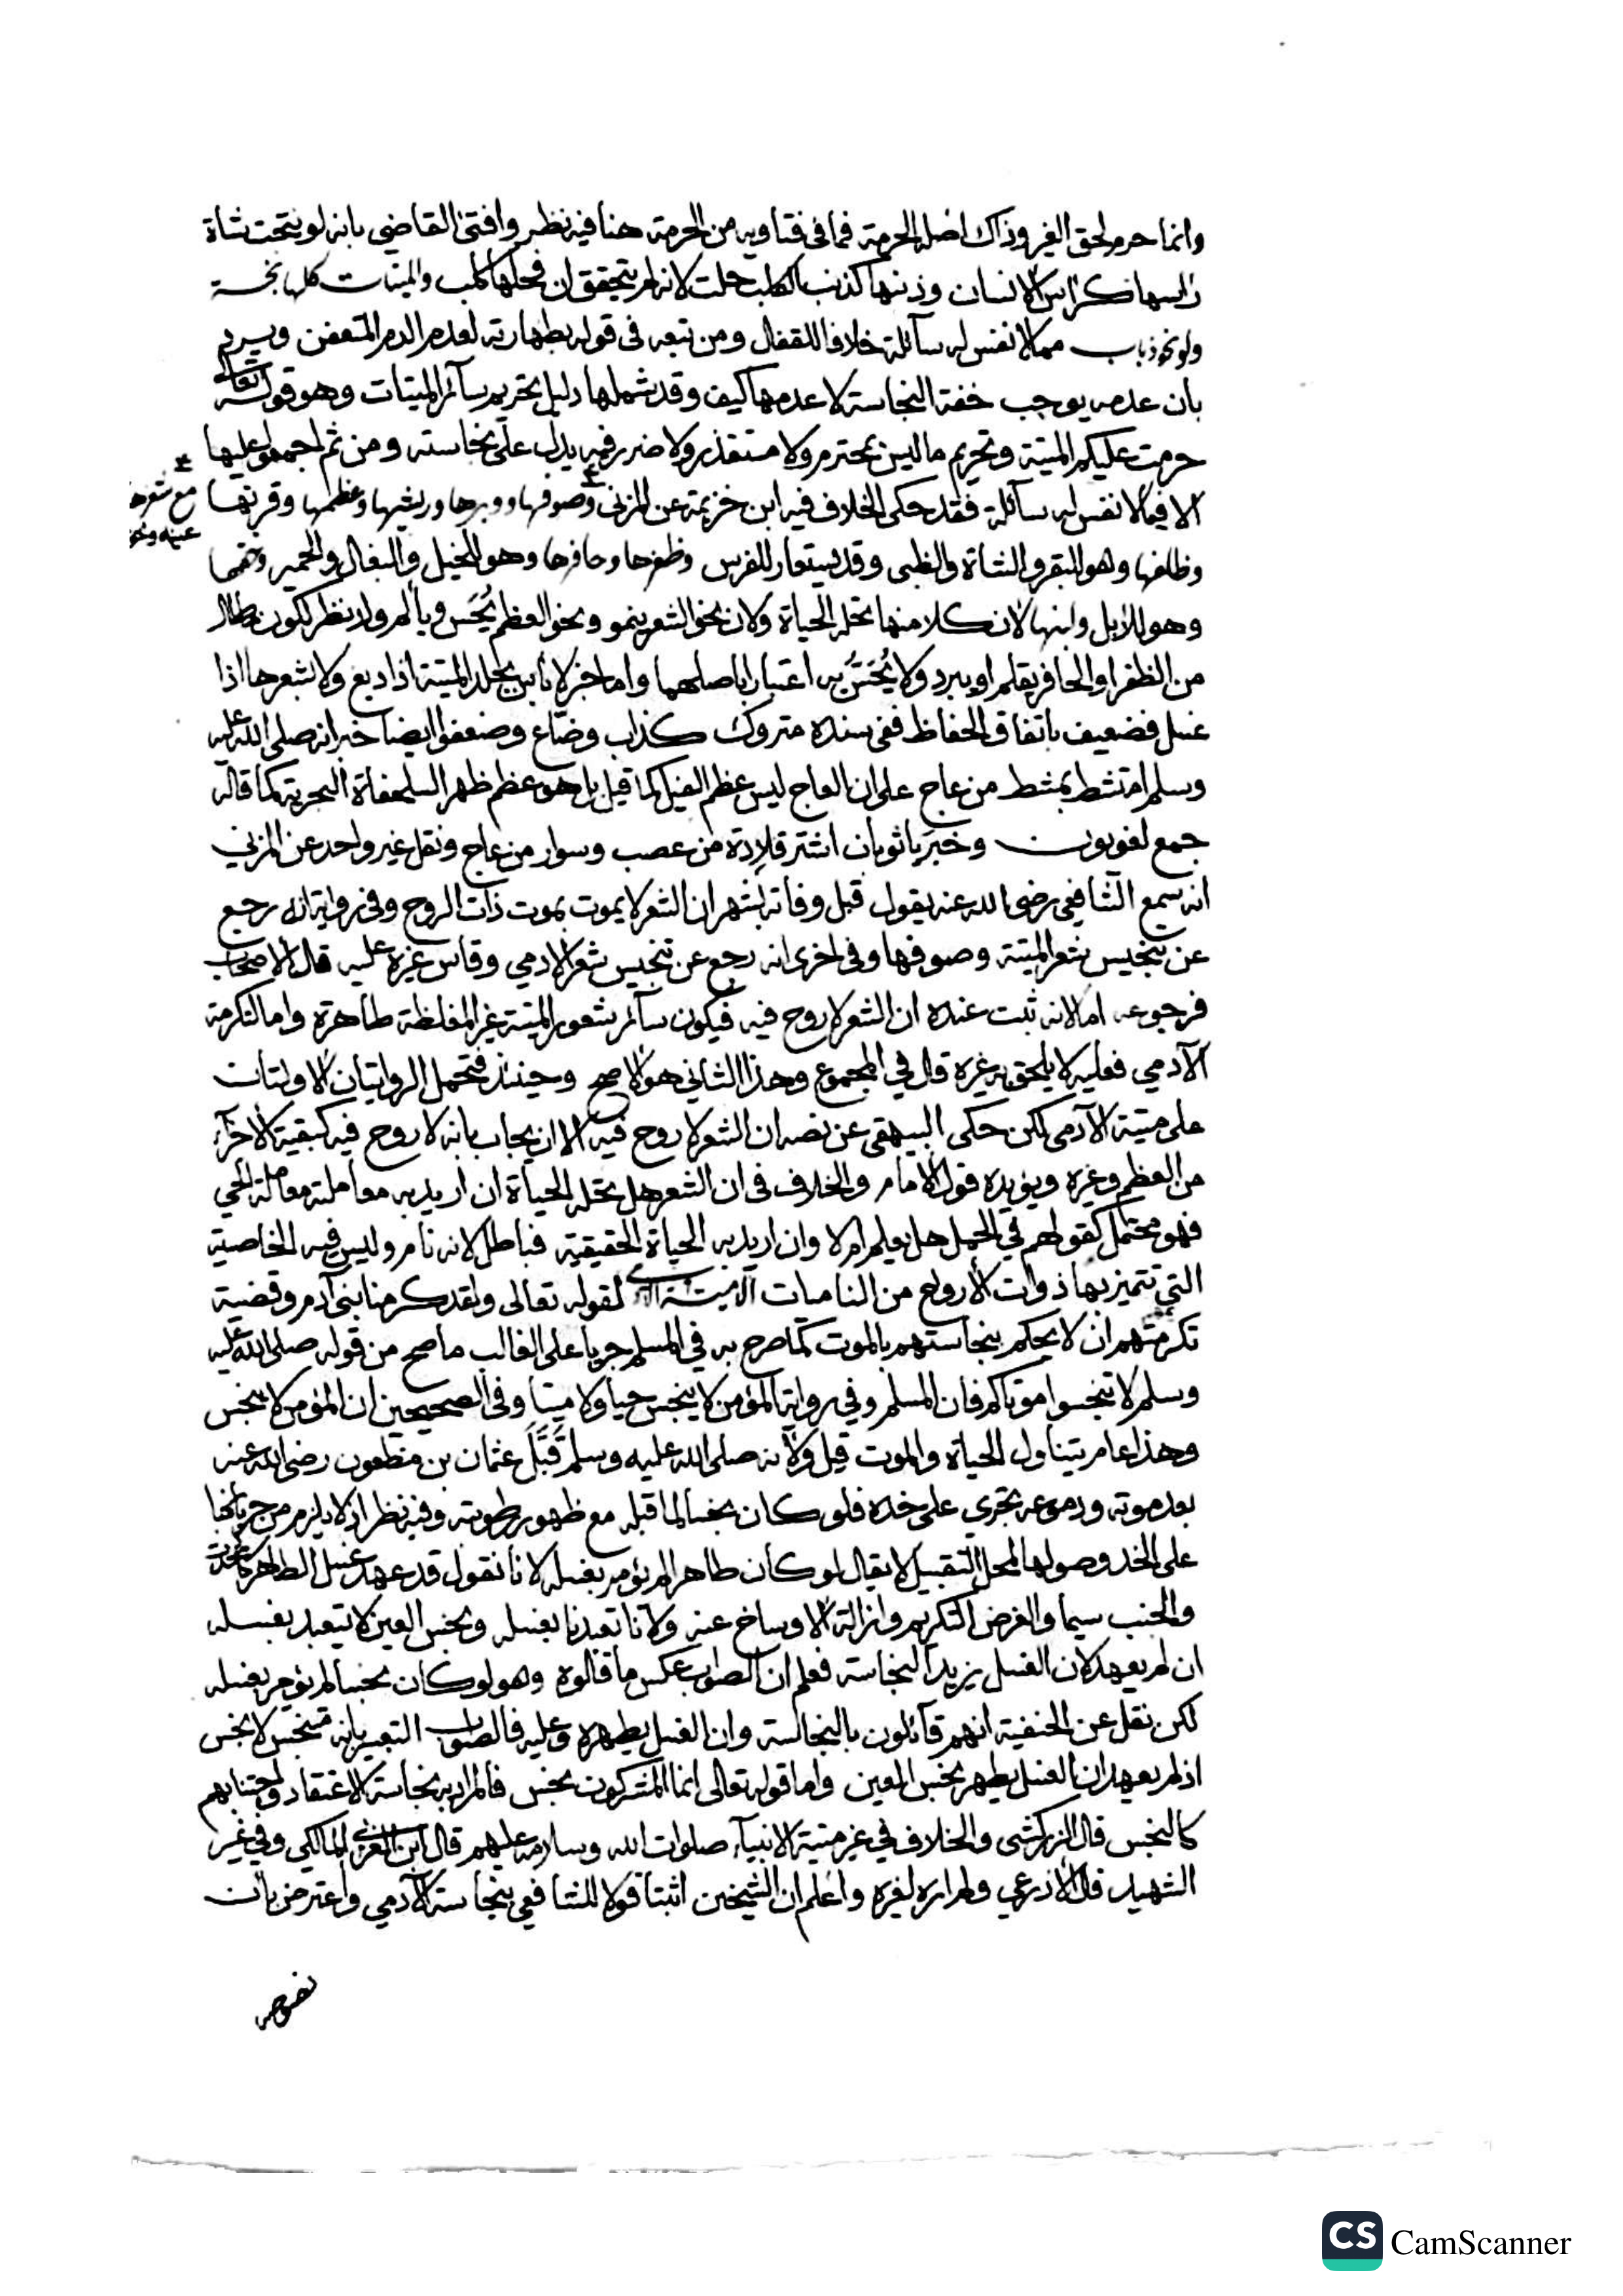 وانما حرم لحق الغير وذاك اصله الحرمة فما فى فتاويه من الحرمة هنا فيه نظر وافتى القاضى بانه لو نتجت شاة
راسها كراس الانسان وذنبها كذنب الكلب حلت لانه لم يتحقق ان فحلها كلب والميتات كلها نجسة
ولو نحو ذباب مما لا نفس له سآئلة خلافا للقفال ومن تبعه فى قوله بطهارته لعدم الدم المتعفن ويرد
بان عدمه يوجب خفة النجاسة لا عدمها كيف وقد شملها دليل تحريم سآئر الميتات وهو قوله تعالى
حرمت عليكم الميتة وتحريم ما ليس بمحترم ولا مستقذر ولا ضرر فيه يدل على نجاسته ومن ثم اجمعوا عليها
الا فيما لا نفس له سآئلة فقد حكى الخلاف فيه ابن خزيمة عن المزنى وصوفها ووبرها وريشها وعظمها وقرنها
مع شعرها
وظلفها وهو للبقر والشاة والظبى وقد يستعار للفرس وظفرها وحافرها وهو للخيل والبغال والحمير وخفها
وهو للابل ولبنها لان كلا منها تحله الحياة ولان نحو الشعر ينمو ونحو العظم يُحَس ويألم ولا نظر لكون ما طال
من الظفر او الحافر يقلم او يبرد ولا يُحَسُّ به اعتبارا باصلهما واما خبر لا باس بجلد الميتة اذا دبغ ولا بشعرها اذا
غسل فضعيف باتفاق الحفاظ ففى سنده متروك كذاب وضّاع وضعفوا ايضا خبر انه صلى الله عليه
وسلم امتشط بمشط من عاج على ان العاج ليس عظم الفيل كما قيل بل هو عظم ظهر السلحفاة البحرية كما قاله
جمع لغويون وخبر يا ثوبان اشتر قلادة من عصب وسوار من عاج ونقل غير واحد عن المزني
انه سمع الشافعي رضى الله عنه يقول قبل وفاته بشهر ان الشعر لا يموت بموت ذات الروح وفى رواية انه رجع
عن تنجيس شعر الميتة وصوفها وفى اخرى انه رجع عن تنجيس شعر الادمي وقاس غيره عليه قال الاصحاب
فرجوعه اما لانه ثبت عنده ان الشعر لا روح فيه فيكون سآئر شعور الميتة غير المغلظة طاهرة واما لتكرمة
الآدمي فعليه لا يلحق به غيره قال في المجموع وهذا الثاني هو الاصح وحينئذ فتحمل الروايتان الاولتان
على ميتة الآدمى لكن حكى البيهقى عن نصه ان الشعر لا روح فيه الا ان يجاب بانه لا روح فيه كبقية الاجزآء
من العظم وغيره ويؤيده قول الامام والخلاف فى ان الشعر هل تحله الحياة ان اريد به معاملته معاملة الحي
فهو محتمل كقولهم في الحمل هل يعلم ام لا وان اريد به الحياة الحقيقية فباطل لانه نام وليس فيه الخاصية
التى تتميز بها ذوات الأرواح من الناميات الا ميتة لقوله تعالى ولقد كرمنا بنى آدم وقضية
تكرمتهم ان لا يحكم بنجاستهم بالموت كما صرح به في المسلم جريا على الغالب ما صح من قوله صلى الله عليه
وسلم لا تنجسوا موتاكم فان المسلم وفي رواية المؤمن لا ينجس حيا ولا ميتا وفى الصحيحين ان المؤمن لا ينجس
وهذا عام يتناول الحياة والموت قيل ولانه صلى الله عليه وسلم قَبَّلَ عثمان بن مظعون رضى الله عنه
بعد موته ودموعه تجرى على خده فلو كان نجسا لما قبله مع ظهور رطوبته وفيه نظر اذ لا يلزم من جريانها
على الخد وصولها لمحل التقبيل لا يقال لو كان طاهرا لم يؤمر بغسله لانا نقول قد عهد غسل الطاهر كالمحدث
والجنب سيما والغرض التكريم وازالة الاوساخ عنه ولانا تعبدنا بغسله ونجس العين لا يتعبد بغسله
ان لم يعهد لان الغسل يزيد النجاسة فعلم ان الصواب عكس ما قالوه وهو لو كان نجسا لم يؤمر بغسله
لكن نقل عن الحنفية انهم قآئلون بالنجاسة وان الغسل يطهره وعليه فالصواب التعبير بانه متنجس لا نجس
اذ لم يعهد ان الغسل يطهر نجس العين واما قوله تعالى انما المشركون نجس فالمراد به نجاسة الاعتقاد واجتنابهم
كالنجس قال الزركشى والخلاف في غير ميتة الانبيآء صلوات الله وسلامه عليهم قال ابن العربي المالكي وفي غير
الشهيد قال الاذرعي ولم اره لغيره واعلم ان الشيخين اثبتا قولا للشافعي بنجاسة الآدمي واعترض بان
نصوصه
CS CamScanner